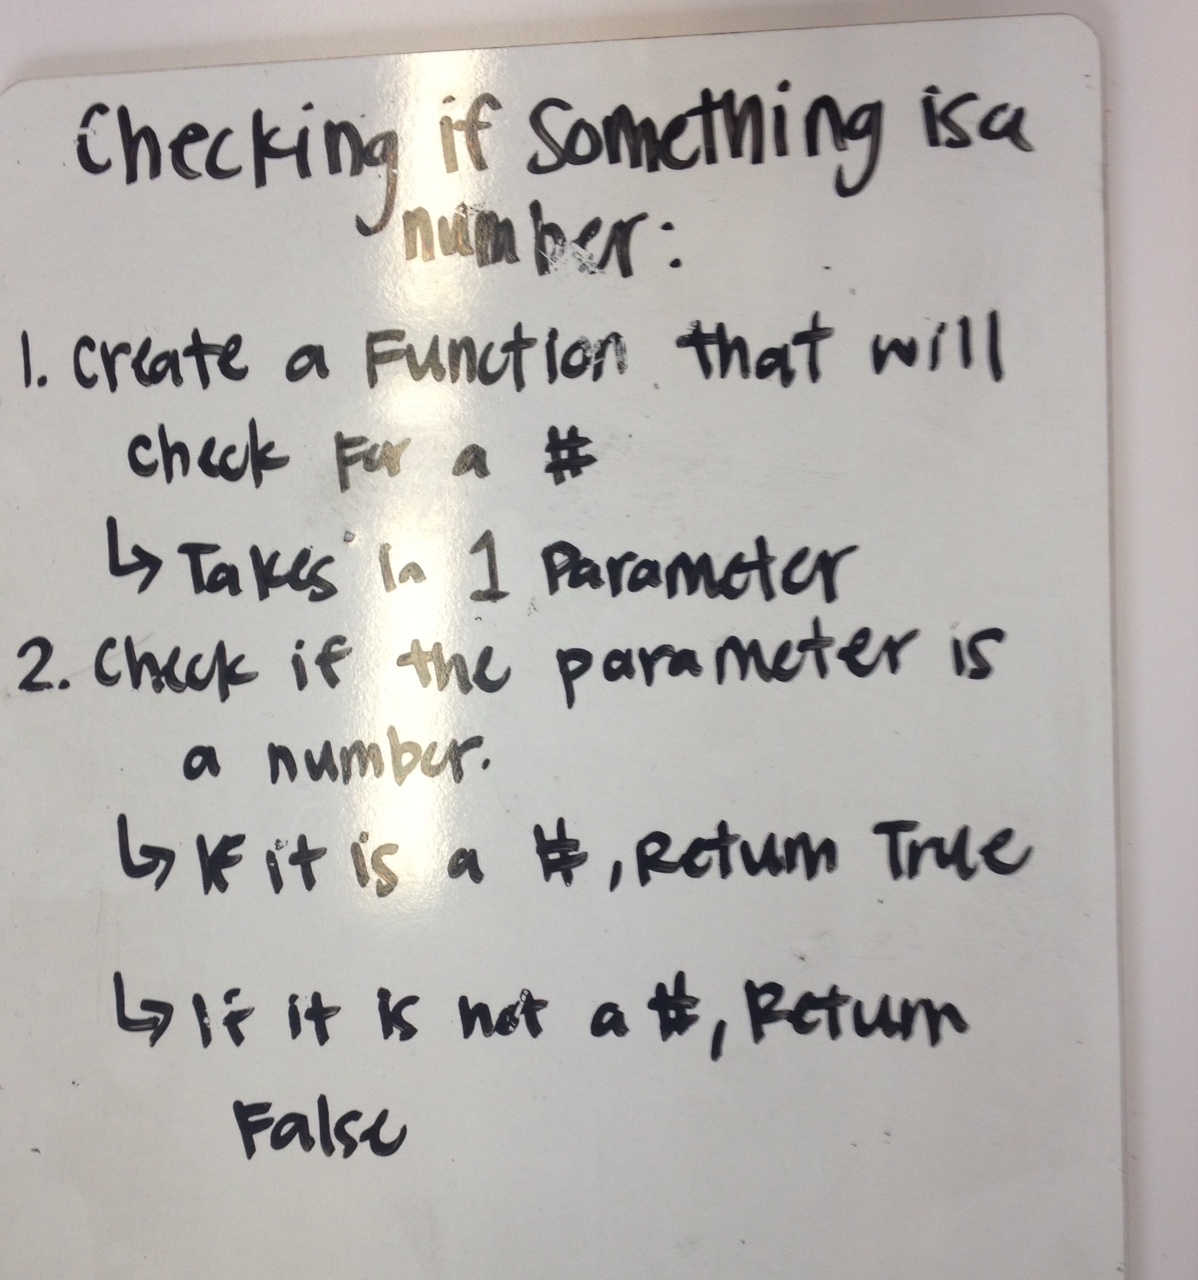 Checking if Something is a
number:
1. Create a Function that will
check For a #
↳ Takes in 1 Parameter
2. Check if the parameter is
a number.
↳ If it is a #, Return True
↳ If it is not a #, Return
False